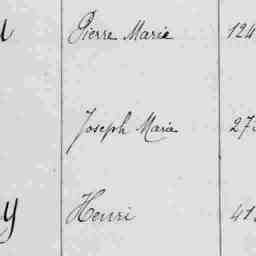 Pierre Marie 124
Joseph Marie 273
Henri 41